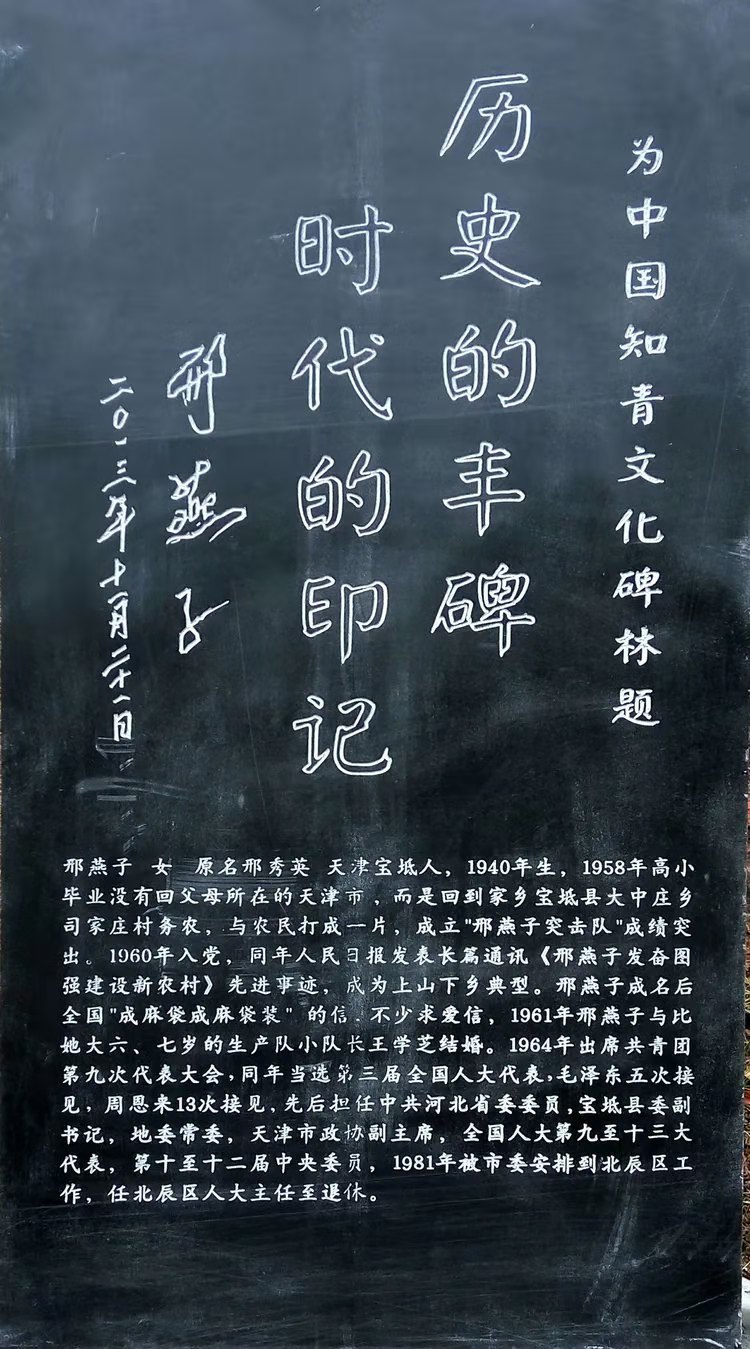 为中国知青文化碑林题
历史的丰碑
时代的印记
邢燕子
二〇一三年十一月二十一日
邢燕子 女 原名邢秀英 天津宝坻人，1940年生，1958年高小
毕业没有回父母所在的天津市，而是回到家乡宝坻县大中庄乡
司家庄村务农，与农民打成一片，成立"邢燕子突击队"成绩突
出。1960年入党，同年人民日报发表长篇通讯《邢燕子发奋图
强建设新农村》先进事迹，成为上山下乡典型。邢燕子成名后
全国"成麻袋成麻袋装" 的信．不少求爱信，1961年邢燕子与比
她大六、七岁的生产队小队长王学芝结婚。1964年出席共青团
第九次代表大会，同年当选第三届全国人大代表，毛泽东五次接
见，周恩来13次接见，先后担任中共河北省委委员，宝坻县委副
书记，地委常委，天津市政协副主席，全国人大第九至十三大
代表，第十至十二届中央委员，1981年被市委安排到北辰区工
作，任北辰区人大主任至退休。